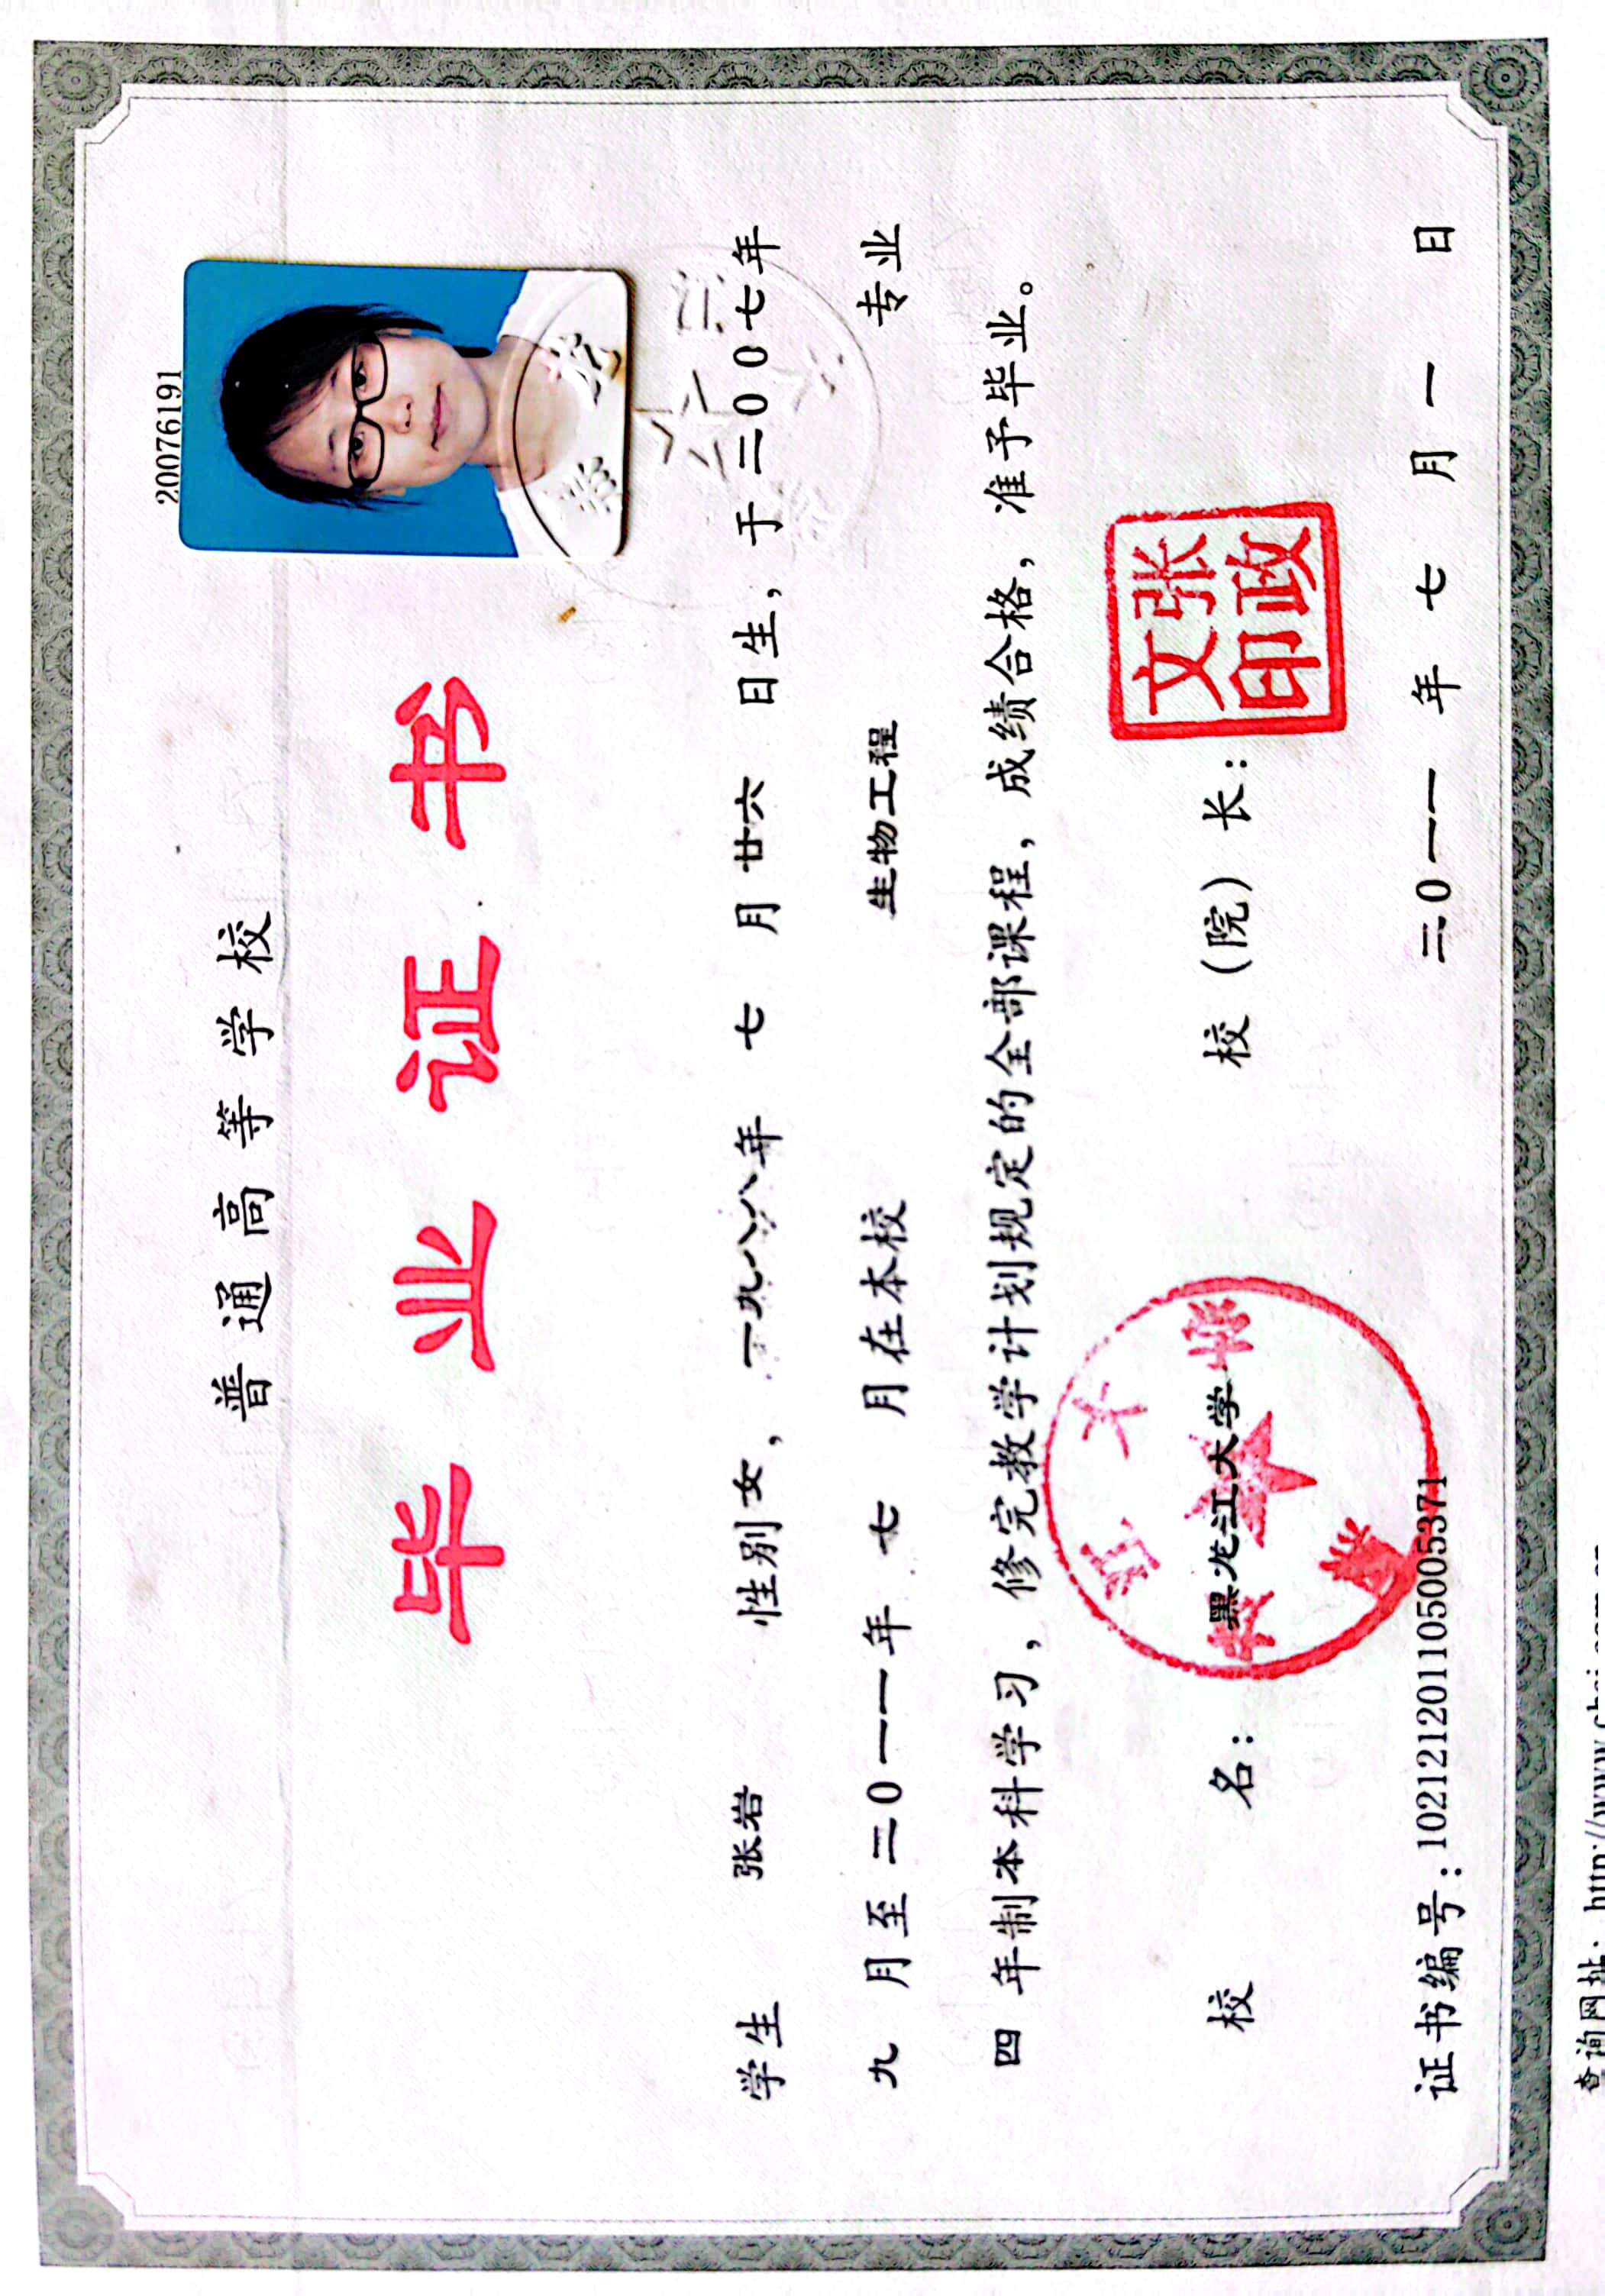 20076191
普通高等学校
毕业证书
学生 张岩 性别女，一九八八年 七 月廿六 日生，于二00七年
九 月至二0一一年 七 月在本校 生物工程 专业
四 年制本科学习，修完教学计划规定的全部课程，成绩合格，准予毕业。
校 名：黑龙江大学 校（院）长：
张政文印
证书编号：102121201105005371 二0一一 年 七 月 一 日
查询网址：http://www.chsi.com.cn